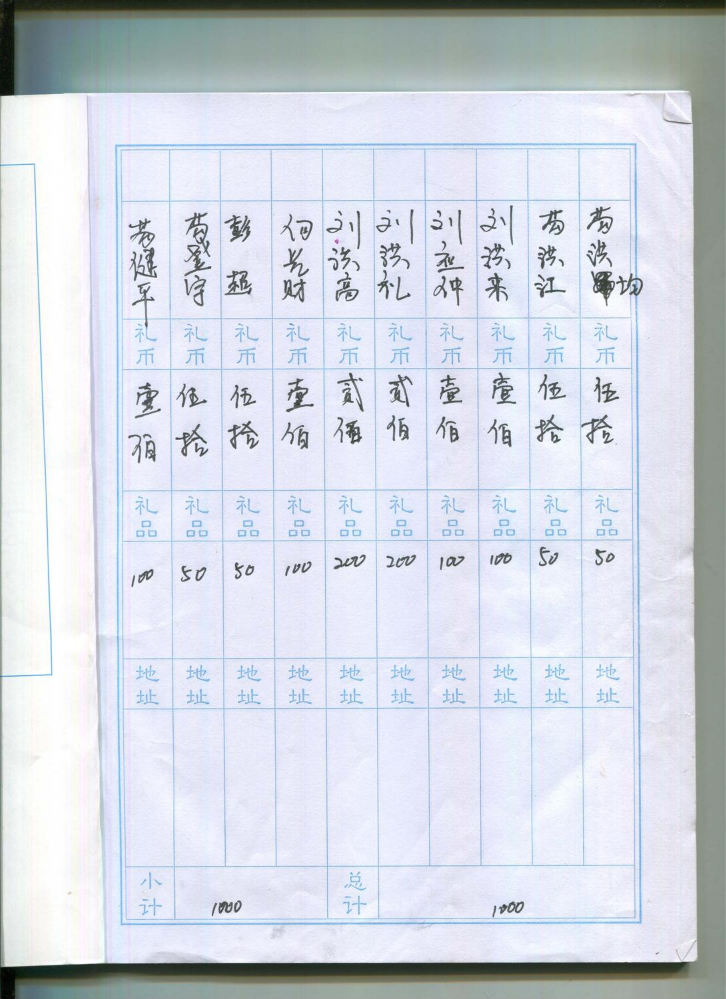 苟洪均 礼币 伍拾 礼品 50 地址
苟洪江 礼币 伍拾 礼品 50 地址
刘洪来 礼币 壹佰 礼品 100 地址
刘应仲 礼币 壹佰 礼品 100 地址
刘洪礼 礼币 贰佰 礼品 200 地址
刘洪高 礼币 贰佰 礼品 200 地址
何长财 礼币 壹佰 礼品 100 地址
彭超 礼币 伍拾 礼品 50 地址
苟登宇 礼币 伍拾 礼品 50 地址
苟健平 礼币 壹佰 礼品 100 地址
小计 1000
总计 1000